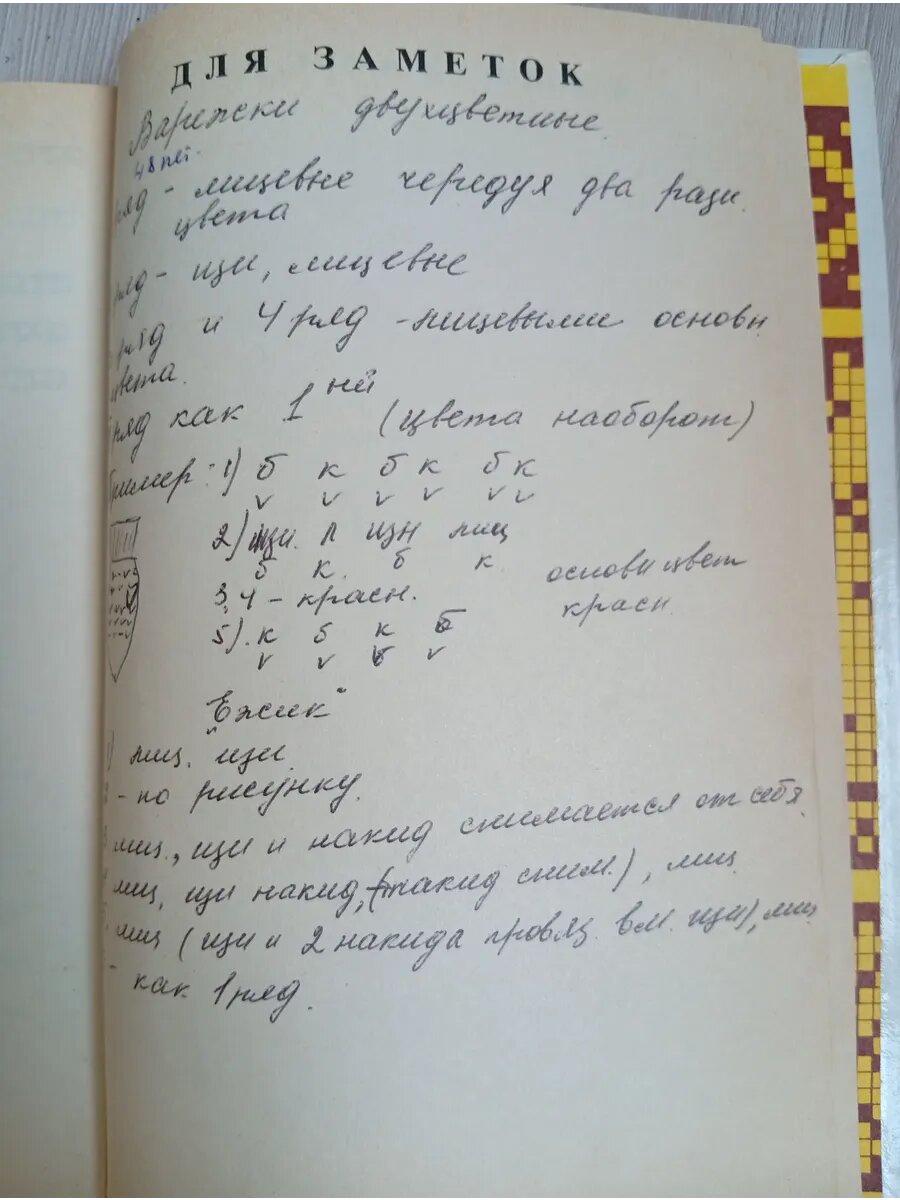 ДЛЯ ЗАМЕТОК
Варежски двухцветные.
48 пет.
ряд - лицевые чередуя два разн.
цвета
ряд - изн, лицевые
ряд и 4 ряд - лицевыми основн
цвета.
ряд как 1 ный (цвета наоборот)
Пример: 1) б к б к б к
v v v v v v
2) изн. л изн лиц
б к. б к основн цвет
3,4 - красн. красн.
5). к б к б
v v v v
"Ежик"
1) лиц. изн.
- по рисунку.
лиц., изн и накид снимается от себя
лиц, изн накид, (накид сним.), лиц
лиц (изн и 2 накида провяз. вм. изн), лиц
- как 1 ряд.